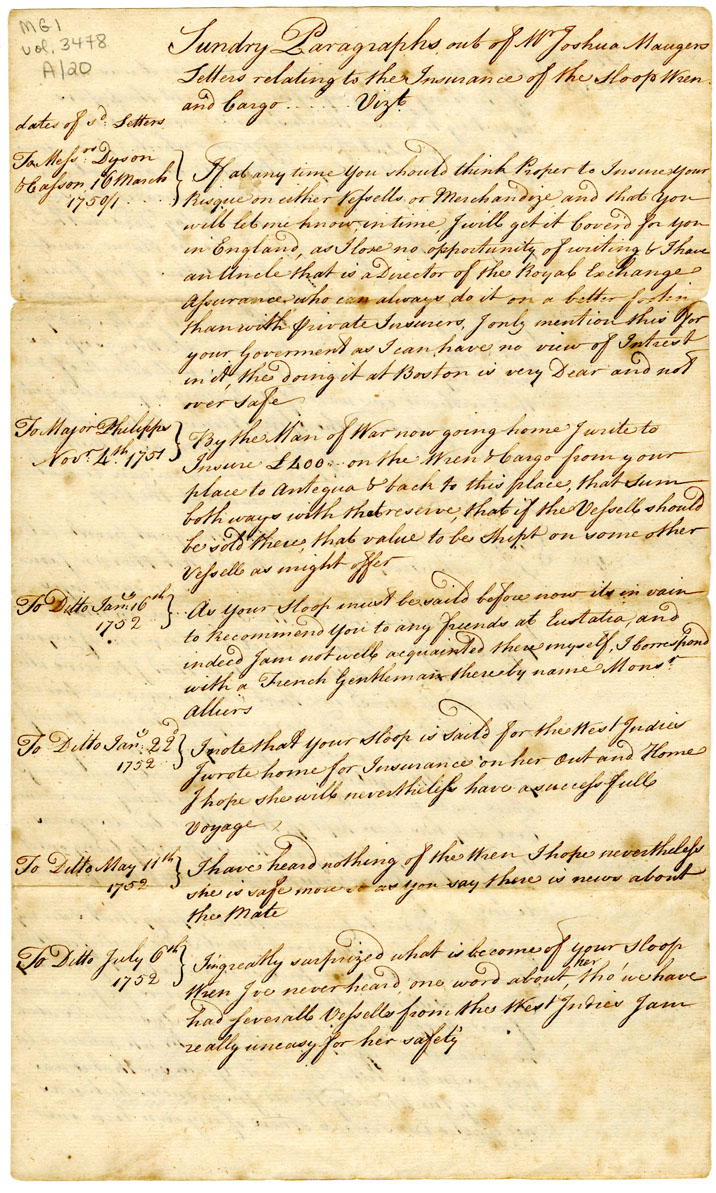 MG1
vol. 3478
A/20
Sundry Paragraphs out of Mr Joshua Maugers
Letters relating to the Insurance of the Sloop Wren
and Cargo ..... Vizt.
dates of sd. Letters
To Messrs Dyson
& Casson 16 March
1750/1
If at any time you should think Proper to Insure your
Risque on either Vessells or Merchandize and that you
will let me know in time, I will get it Coverd for you
in England, as I lose no opportunity of writing & I have
an Uncle that is a Director of the Royal Exchange
Assurance who can always do it on a better footin
than with private Insurers, I only mention this for
your Goverment as I can have no view of Intrest
in it, the doing it at Boston is very Dear and not
over safe
To Major Philipps
Novr. 4th. 1751
By the Man of War now going home I write to
Insure £400 .. on the Wren & Cargo from your
place to Antegua & back to this place, that Sum
both ways with that reserve, that if the Vessell should
be sold there, that value to be Shipt on some other
Vessell as might offer
To Ditto Jany. 16th
1752
As your Sloop must be saild before now its in vain
to Recommend you to any friends at Eustatia, and
indeed I am not well acquainted there myself, I Correspond
with a French Gentleman thereby name Monsr
alliers
To Ditto Jany. 22d
1752
I note that your Sloop is Saild for the West Indies
I wrote home for Insurance on her Out and Home
I hope she will nevertheless have a successfull
Voyage
To Ditto May 11th
1752
I have heard nothing of the Wren I hope nevertheless
she is safe more so as you say there is news about
the Mate
To Ditto July 6th
1752
I'm greatly surprized what is become of your Sloop
Wren I've never heard one word about her, tho' we have
had severall Vessells from the West Indies I am
really uneasy for her safety